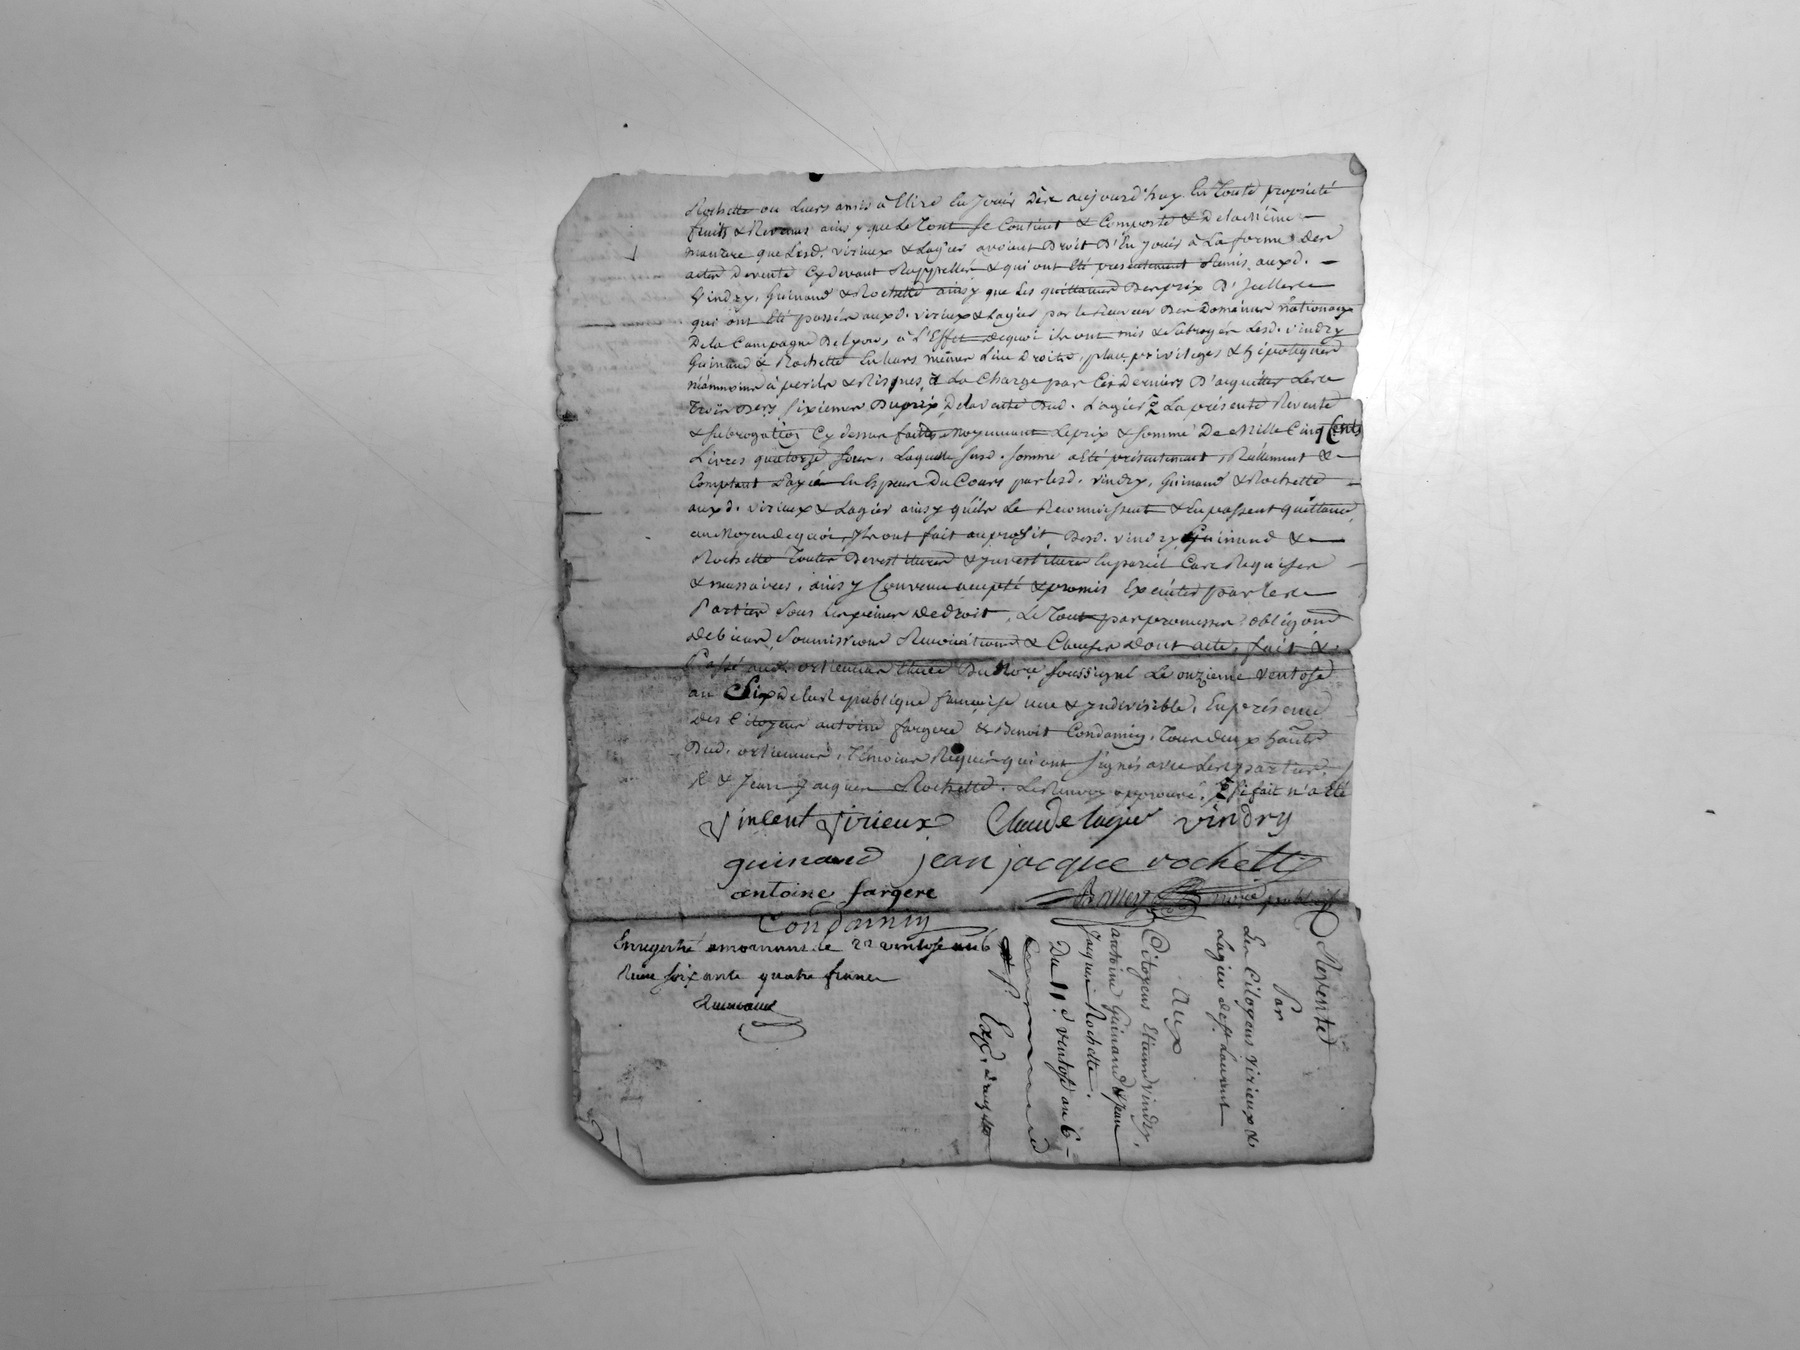 Rochette ou leurs amis à Elire En Jouir dère aujourd'huy En Toute propriété
fruits & Revenus ainsy que Le Tout se Contient & Comporte & De la Même
maniere que Lesd. virieux & Lagier avoient Droit D'En Jouir à La forme Des
actes De vente Cydevant Rappellés & qui ont Eté presentement Remis auxd.
Vindry, Guinand & Rochette ainsy que Les quittances Des prix D'Icelles
qui ont Eté passées auxd. virieux & Lagier par le Receveur Des Domaines nationaux
De la Campagne De Lyon, à L'Effet Dequoi ils ont mis & Subrogés Lesd. vindry
Guinand & Rochette En Leurs mêmes Lieu Droits, place privileges & hipoteques
néanmoins à perils & Risques, à La Charge par Ces Derniers D'acquitter Les
Trois Derx sixiemes Du prix De la vente Dud. Lagier La présente Revente
& subrogation Cy dessus faittes Moyennant Le prix & somme De Mille Cinq Cents
Livres quatorze sous, Laquelle susd. somme a Eté présentement, Réellement &
Comptant Payée En Especes Du Cours par lesd. vindry, Guinand & Rochette
auxd. virieux & Lagier ainsy qu'ils Le Reconnoissent & En passent quittance,
au Moyen dequoi, Ils ont fait au profit Desd. vindry Guinand &
Rochette Toutes Devestitures & Investitures En pareil Cas Requises
& necessaires, ainsy Convenu accepté & promis Exécuter par les
Parties Sous Les peines De droit, Le Tout par promesses obligeons
De biens, Soumissions Renonciations & Clauses Dont acte, fait &
Passé aud. orlienas Etude Du Nore soussigné Le onzieme ventose
an Six De la Republique française une & Indivisible, En présence
Des Citoyens antoine fargere & Benoit Condamin, Tous deux habts
Dud. orlienas, Témoins Requis qui ont signés avec Les parties,
& Jean Jacques Rochette. Le Renvoy approuvé. Ce fait n'a Eté
Vincent Virieux Claude lagier vindry
guinand jean jacque rochette
antoine fargere
nore public
Condamin
Enregistré a mornant le 22 ventose an 6
Reçu soixante quatre francs
Revente
Par
Les Citoyens virieux &
Lagier de St. Laurent
Aux
Citoyens Etienne vindry,
antoine Guinand & Jean
Jaques Rochette.
Du 11. e ventose an 6